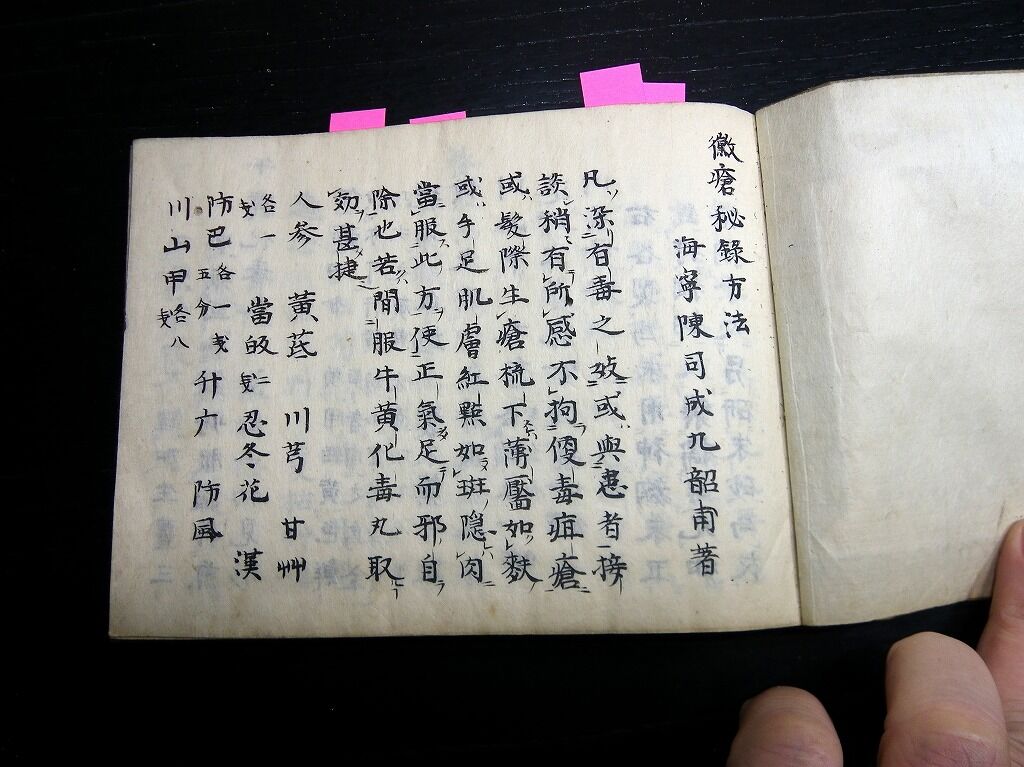 黴瘡秘録方法
海寧陳司成九韶甫著
凡染有毒之 或與患者接
談稍有所感不拘 毒疳瘡
或髮際生瘡梳下薄靨如麩
或手足肌膚紅點如斑隠肉
當服此方使正氣足而邪自
除也若間服牛黄化毒丸取
効甚捷
人參 黄芪 川芎 甘艸
各一 當皈 二 忍冬花 漢
防巴 各一 五分 升六 防風
川山甲 各八